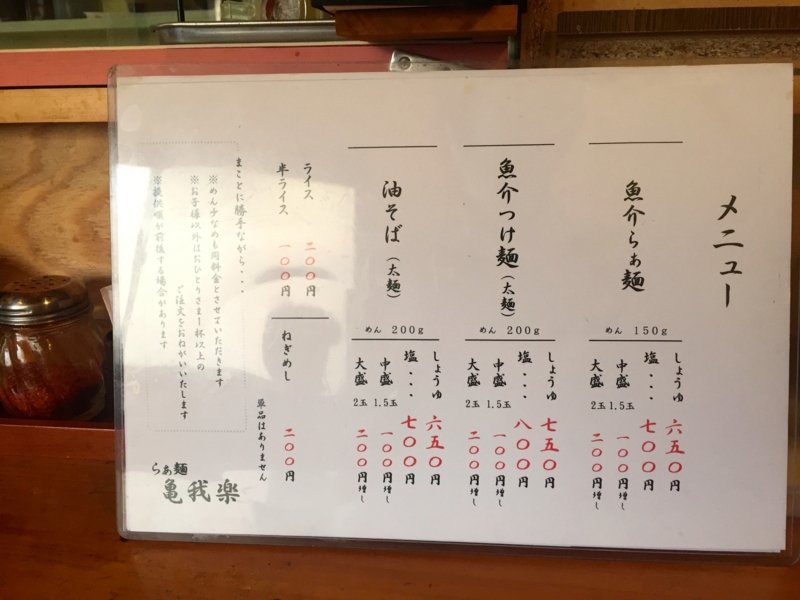 メニュー
魚介らぁ麺
めん 150g
しょうゆ 六五〇円
塩・・・ 七〇〇円
中盛 1.5玉 一〇〇円増し
大盛 2玉 二〇〇円増し
魚介つけ麺（太麺）
めん 200g
しょうゆ 七五〇円
塩・・・ 八〇〇円
中盛 1.5玉 一〇〇円増し
大盛 2玉 二〇〇円増し
油そば（太麺）
めん 200g
しょうゆ 六五〇円
塩・・・ 七〇〇円
中盛 1.5玉 一〇〇円増し
大盛 2玉 二〇〇円増し
ライス 二〇〇円
半ライス 一〇〇円
ねぎめし 二〇〇円
単品はありません
まことに勝手ながら・・・
※めん少なめも同料金とさせていただきます
※お子様以外はおひとりさま１杯以上の
ご注文をおねがいいたします
※提供順が前後する場合があります
らぁ麺
亀我楽